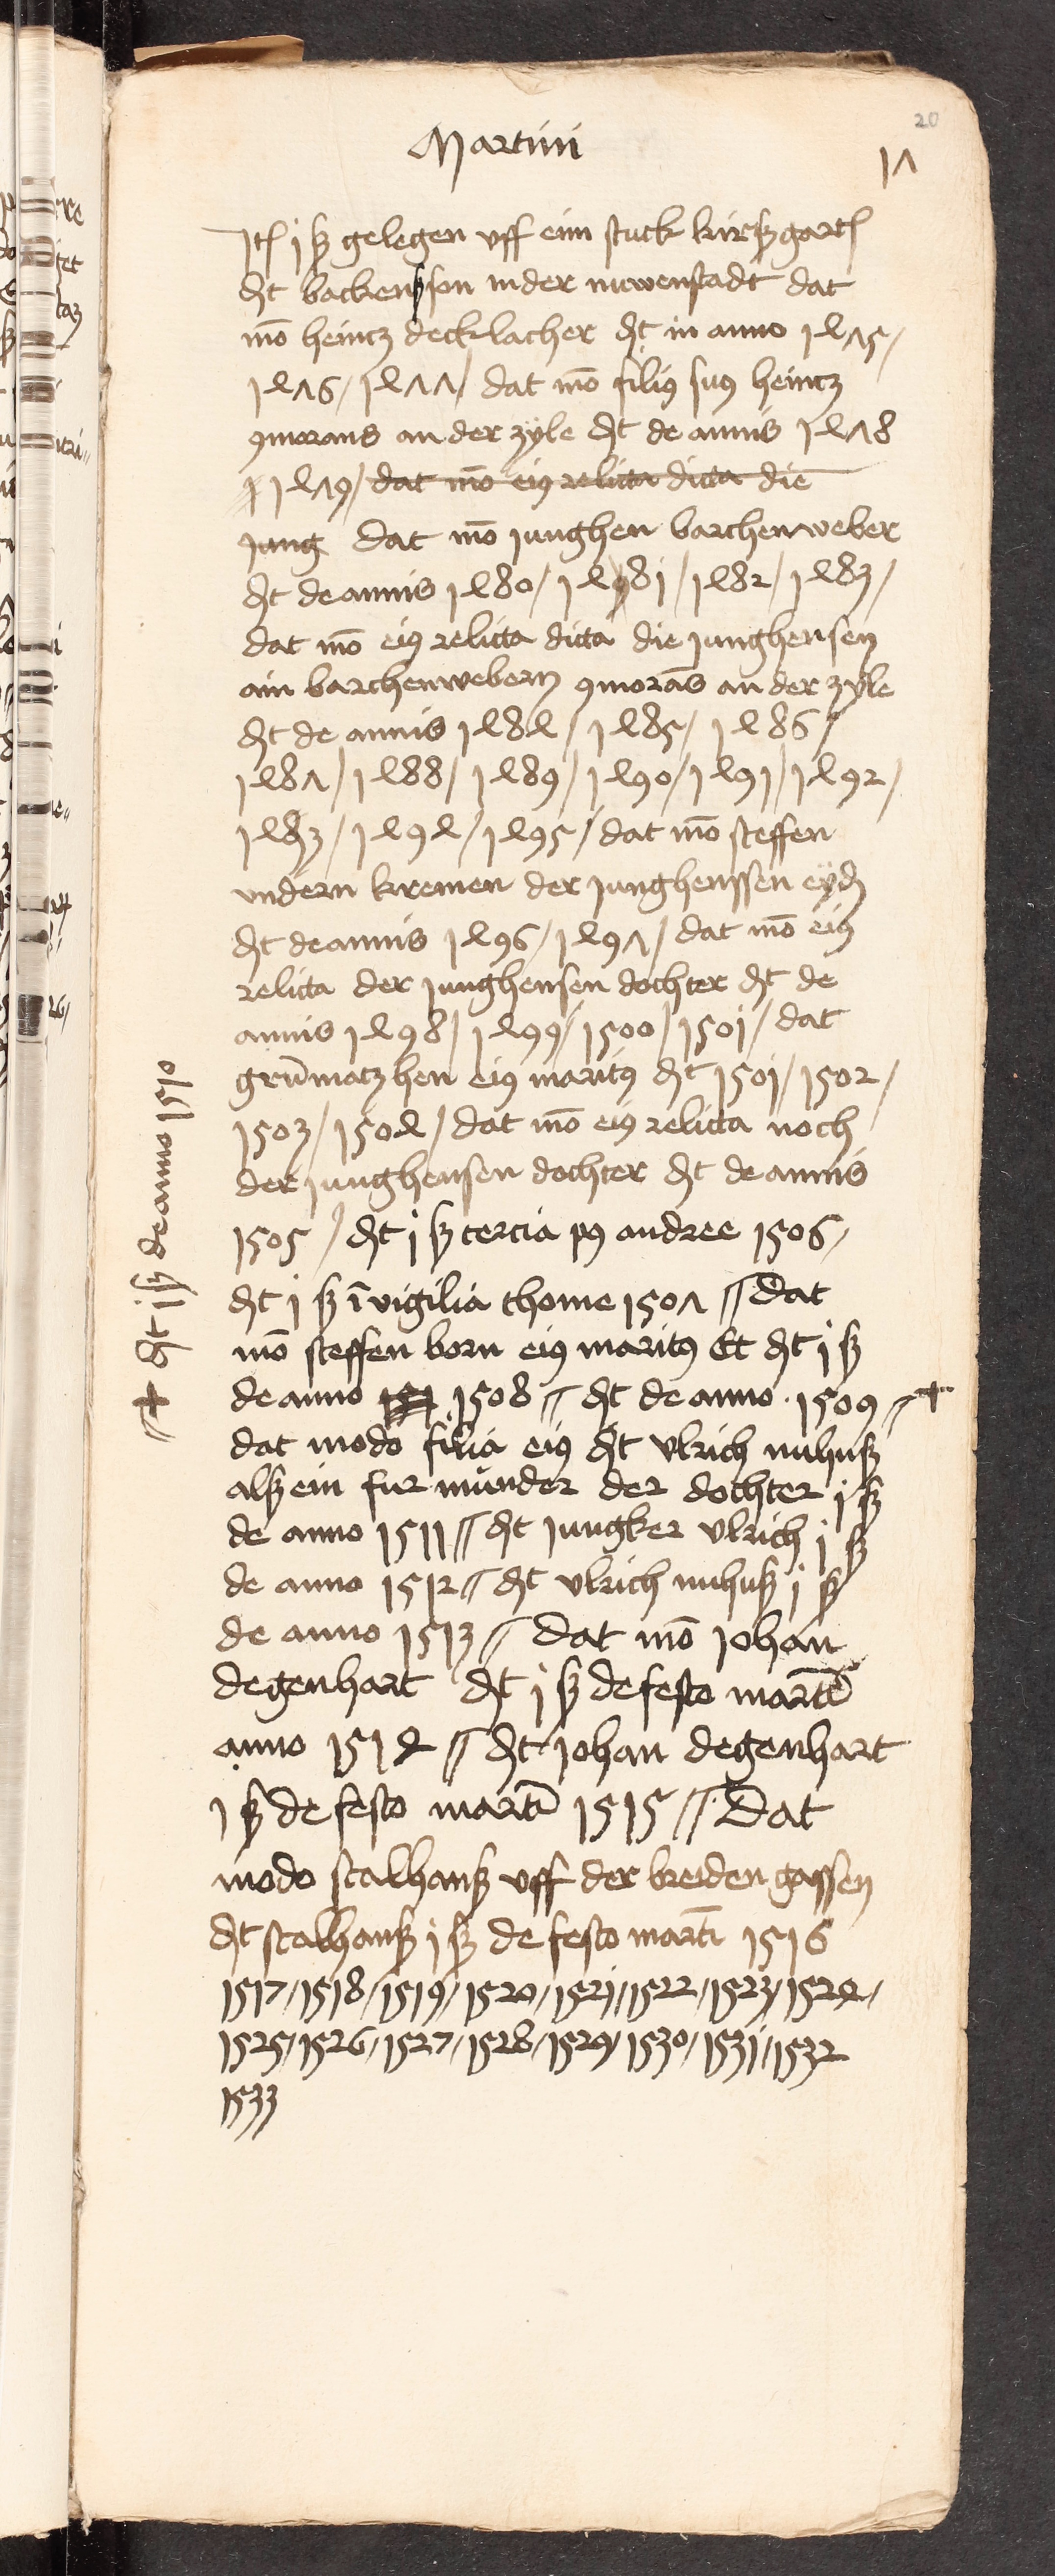 20
Martini
17
Itē j ß gelegen vff eim stuck kirßgartē
dt backenßson inder nuwenstadt dat
mō heincz decklacher dt in anno 1475/
1476/ 1477/ dat mō filiꝰ suꝰ heincz
ꝯmorans an der zyle dt de annis 1478
1479/ dat mō eiꝰ relicta dicta die
jung dat mō junghen barchenweber
dt de annis 1480/ 1481/ 1482/ 1483/
dat mō eiꝰ relicta dicta die junghensen
ain barchenwebern ꝯmorās an der zyle
dt de annis 1484/ 1485/ 1486/
1487/ 1488/ 1489/ 1490/ 1491/ 1492/
1493/ 1494/ 1495/ dat mō steffen
vndern kremen der junghenssen eydē
dt de annis 1496/ 1497/ dat mō eiꝰ
relicta der junghensen dochter dt de
annis 1498/ 1499/ 1500/ 1501/ dat
grūmatz hen eiꝰ maritꝰ dt 1501/ 1502/
1503/ 1504/ dat mō eiꝰ relicta noch
der junghensen dochter dt de annis
1505 / dt j ß tercia pꝰ andree 1506/
dt j ß ī vigilia thome 1507 // dat
mō steffen born eiꝰ maritꝰ Et dt j ß
de anno 1508 // dt de anno 1509 // +
dat modo filia eiꝰ dt vlrich nuhuß
alß ein fur munder der dochter j ß
de anno 1511 // dt jungker vlrich j ß
de anno 1512 // dt vlrich nuhuß j ß
de anno 1513 // dat mō johan
degenhart dt j ß de festo martī
anno 1514 // dt johan degenhart
j ß de festo martī 1515 // Dat
modo stalhanß vff der breiden gassen
dt stalhanß j ß de festo martī 1516
1517/ 1518/ 1519/ 1520/ 1521/ 1522/ 1523/ 1524/
1525/ 1526/ 1527/ 1528/ 1529/ 1530/ 1531/ 1532
1533
// + dt j ß de anno 1510